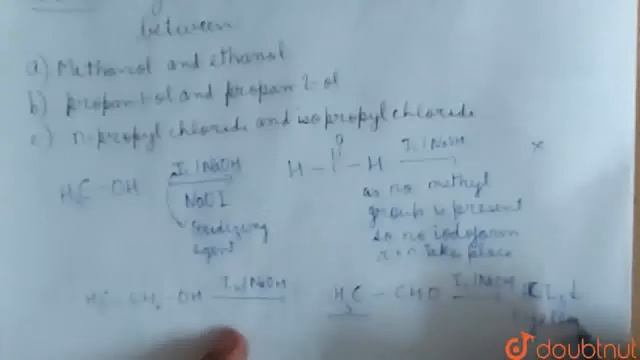 between
a) Methanol and ethanol
b) propan-1-ol and propan 2-ol
c) n-propyl chloride and isopropyl chloride
H₃C - OH I₂/NaOH
NaOI
Oxidizing
agent
O
H - C - H I₂/NaOH ×
as no methyl
group is present
so no iodoform
rxn take place
H₃C - CH₂ - OH I₂/NaOH H₃C - CHO I₂/NaOH CI₃↓
doubtnut